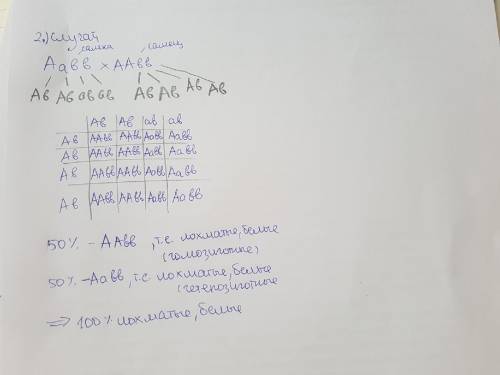 2.) случай
самка самец
Аавв × ААвв
Ав Ав ав ав Ав Ав Ав Ав
Ав Ав ав ав
Ав ААвв ААвв Аавв Аавв
Ав ААвв ААвв Аавв Аавв
Ав ААвв ААвв Аавв Аавв
Ав ААвв ААвв Аавв Аавв
50% - ААвв, т.е. лохматые, белые
(гомозиготные)
50% - Аавв, т.е. лохматые, белые
(гетерозиготные
⇒ 100% лохматые, белые